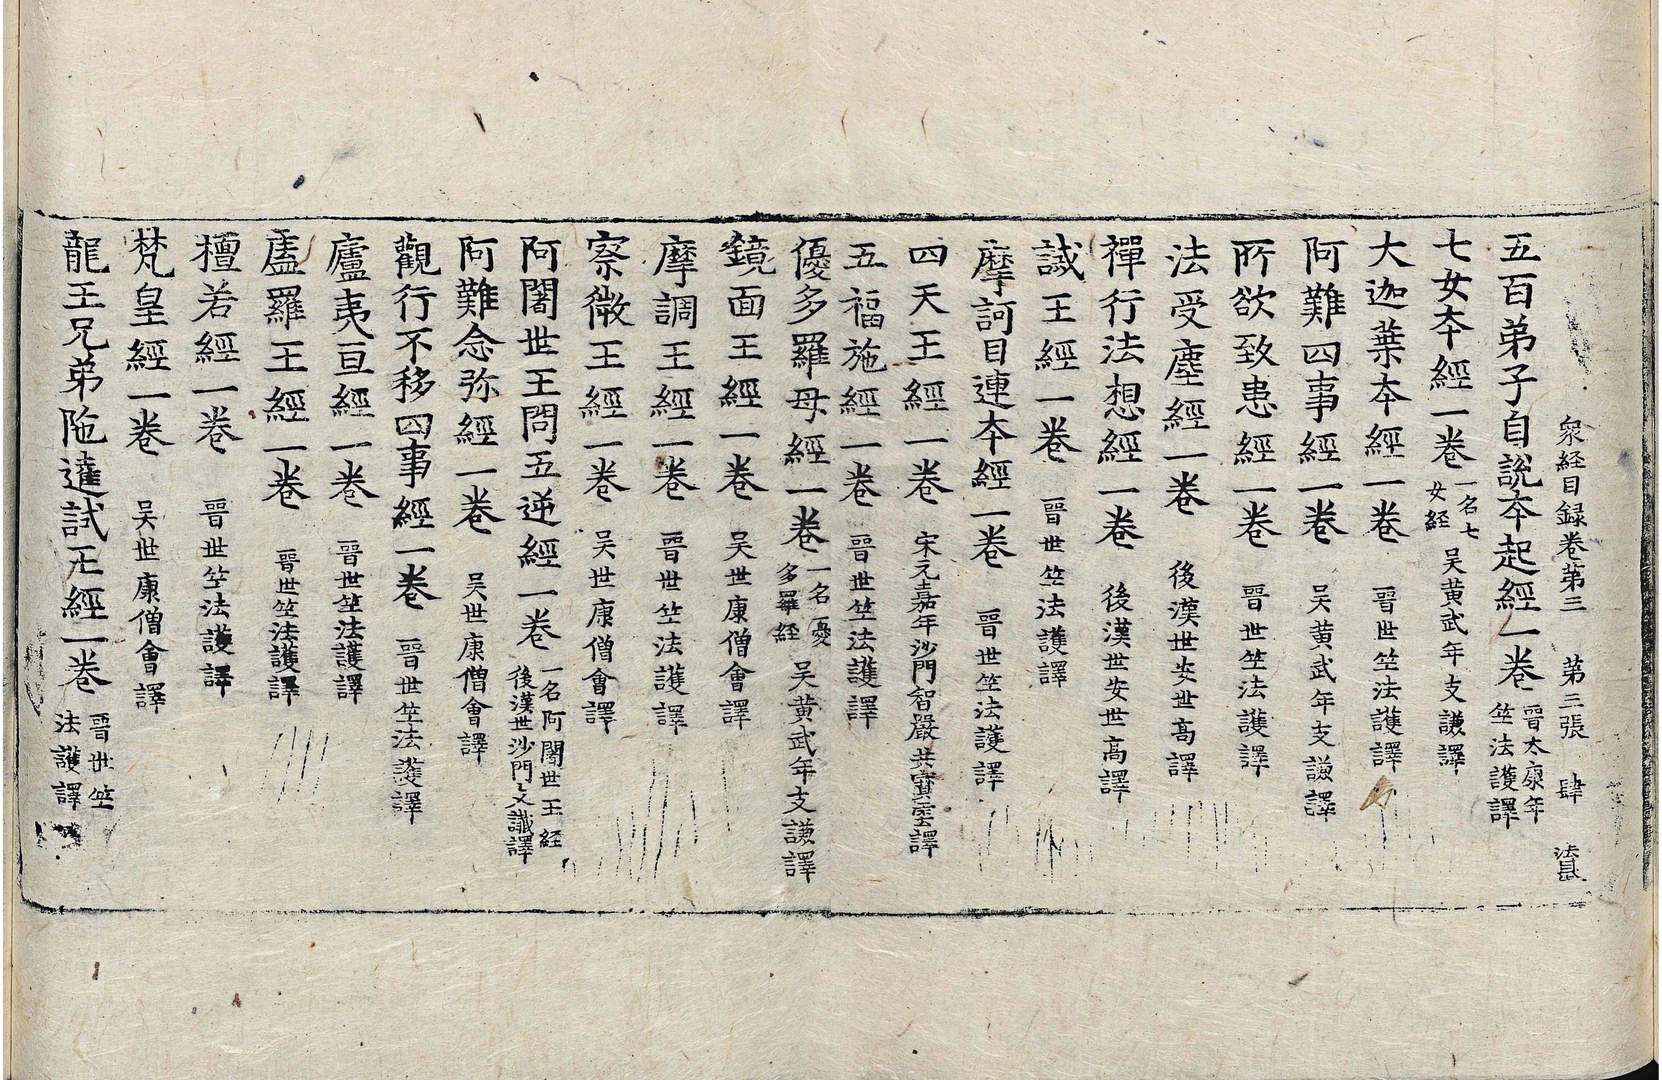 衆経目録卷第三 第三張 肆
五百弟子自說夲起經一卷 晉太康年竺法護譯
七女夲經一卷 一名七女経 吴黄武年支謙譯
大迦葉夲經一卷 晉世竺法護譯
阿難四事經一卷 吴黄武年支謙譯
所欲致患經一卷 晉世竺法護譯
法受塵經一卷 後漢世安世髙譯
禪行法想經一卷 後漢世安世髙譯
誡王經一卷 晉世竺法護譯
摩訶目連夲經一卷 晉世竺法護譯
四天王經一卷 宋元嘉年沙門智嚴共寶雲譯
五福施經一卷 晉世竺法護譯
優多羅母經一卷 一名憂多羅経 吴黄武年支謙譯
鏡面王經一卷 吴世康僧會譯
摩調王經一卷 晉世竺法護譯
察微王經一卷 吴世康僧會譯
阿闍世王問五逆經一卷 一名阿闍世王経 後漢世沙門支讖譯
阿難念弥經一卷 吴世康僧會譯
觀行不移四事經一卷 晉世竺法護譯
廬夷亘經一卷 晉世竺法護譯
盧羅王經一卷 晉世竺法護譯
檀若經一卷 晉世竺法護譯
梵皇經一卷 吴世康僧會譯
龍王兄弟陁達試王經一卷 晉世竺法護譯